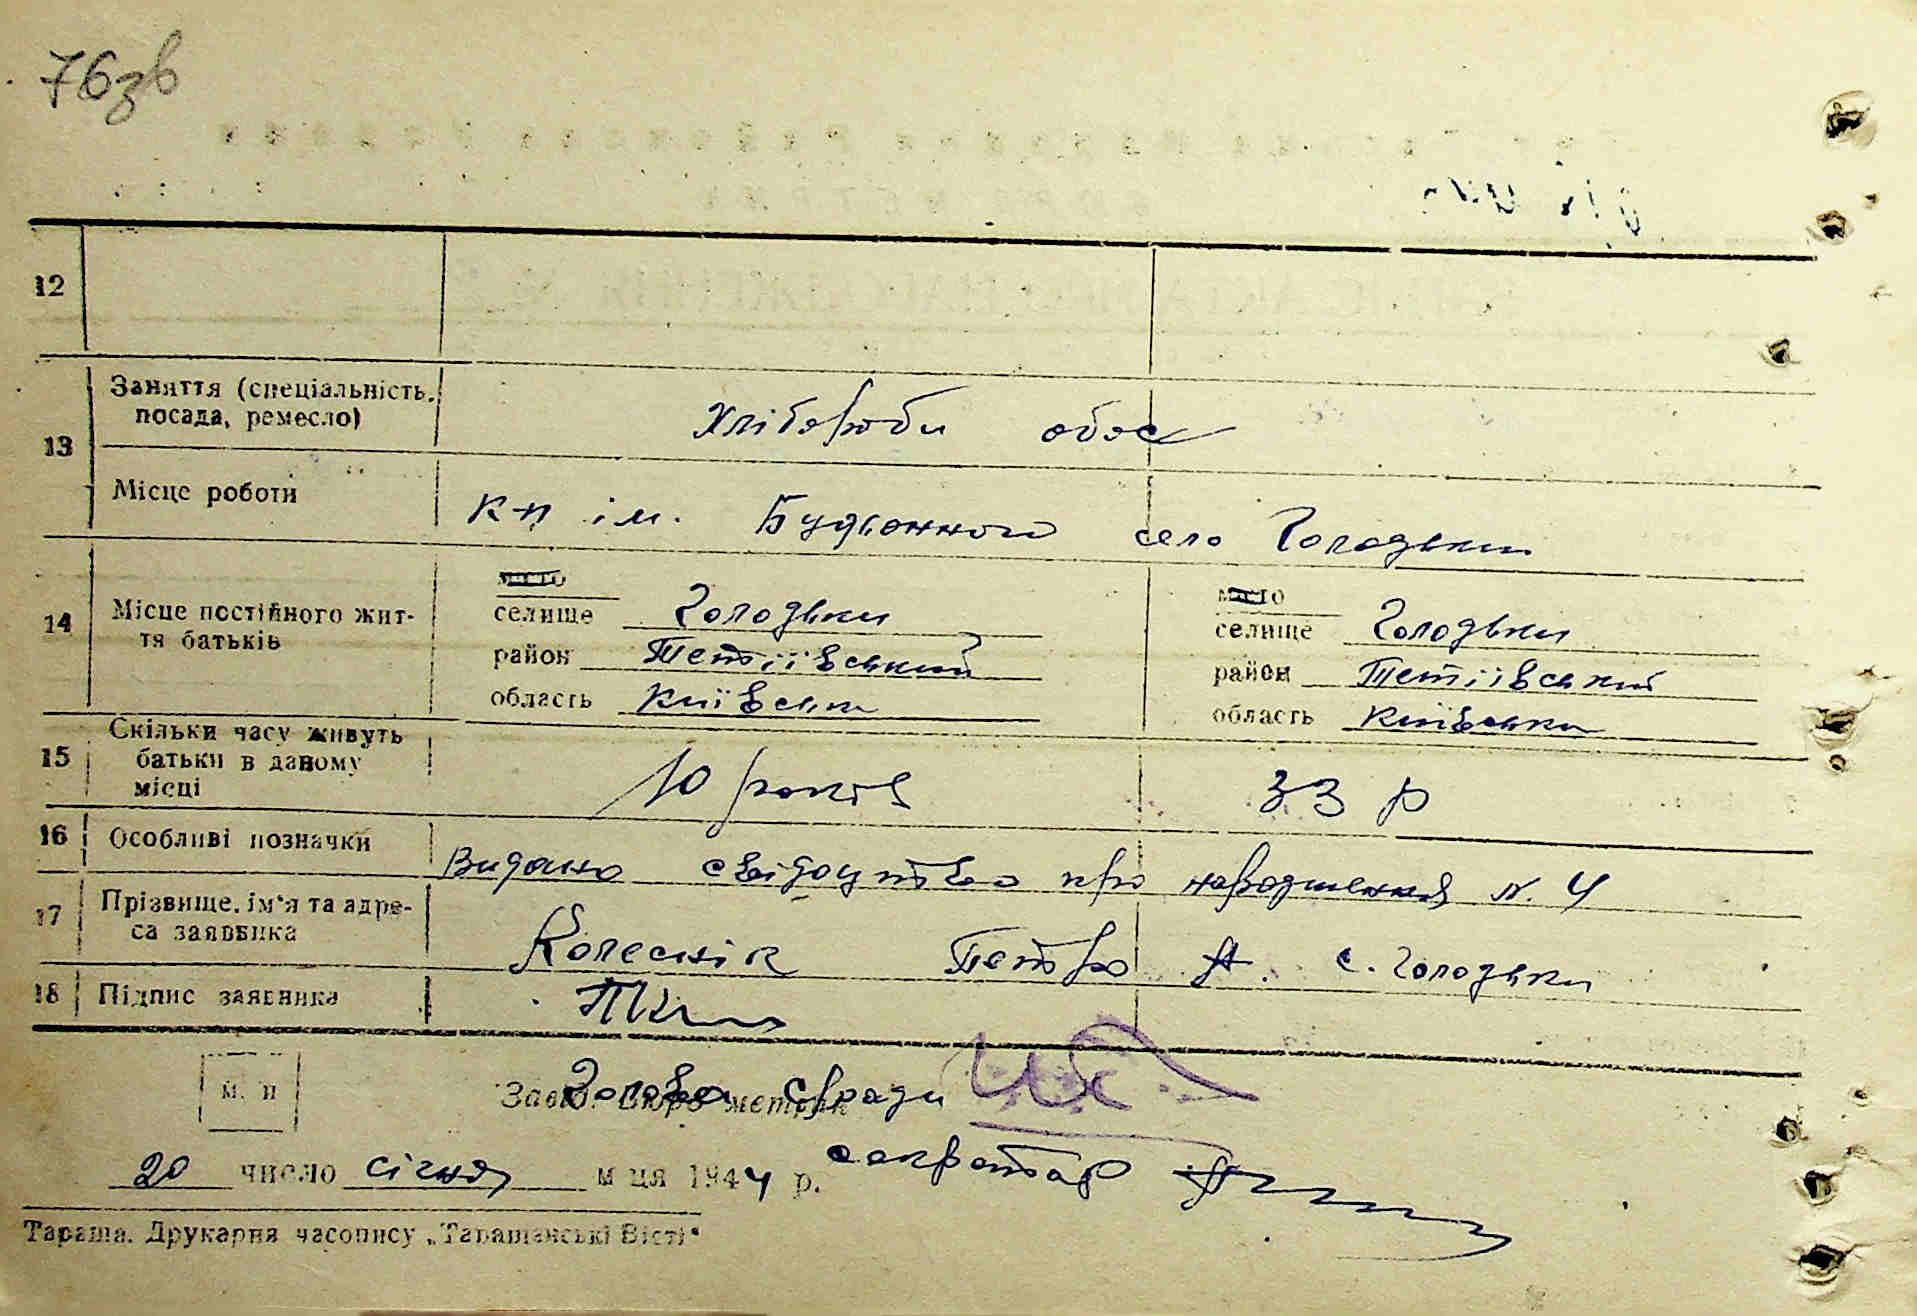 76зв
12
13 Заняття (спеціальність, посада, ремесло) Хлібороби обоє
Місце роботи к-п ім. Будьонного село Голодьки
14 Місце постійного життя батьків
місто місто
селище Голодьки селище Голодьки
район Тетіївський район Тетіївський
область Київська область Київська
15 Скільки часу живуть батьки в даному місці 10 років 33 р
16 Особливі позначки Видано свідоцтво про народження N. 4
17 Прізвище, ім'я та адреса заявника Колеснік Петро А. с. Голодьки
18 Підпис заявника
м. п
Завід. Бюро метрик Голова с/ради
20 число січня м ця 1944 р. секретар
Тараща. Друкарня часопису „Таращанські Вісті“